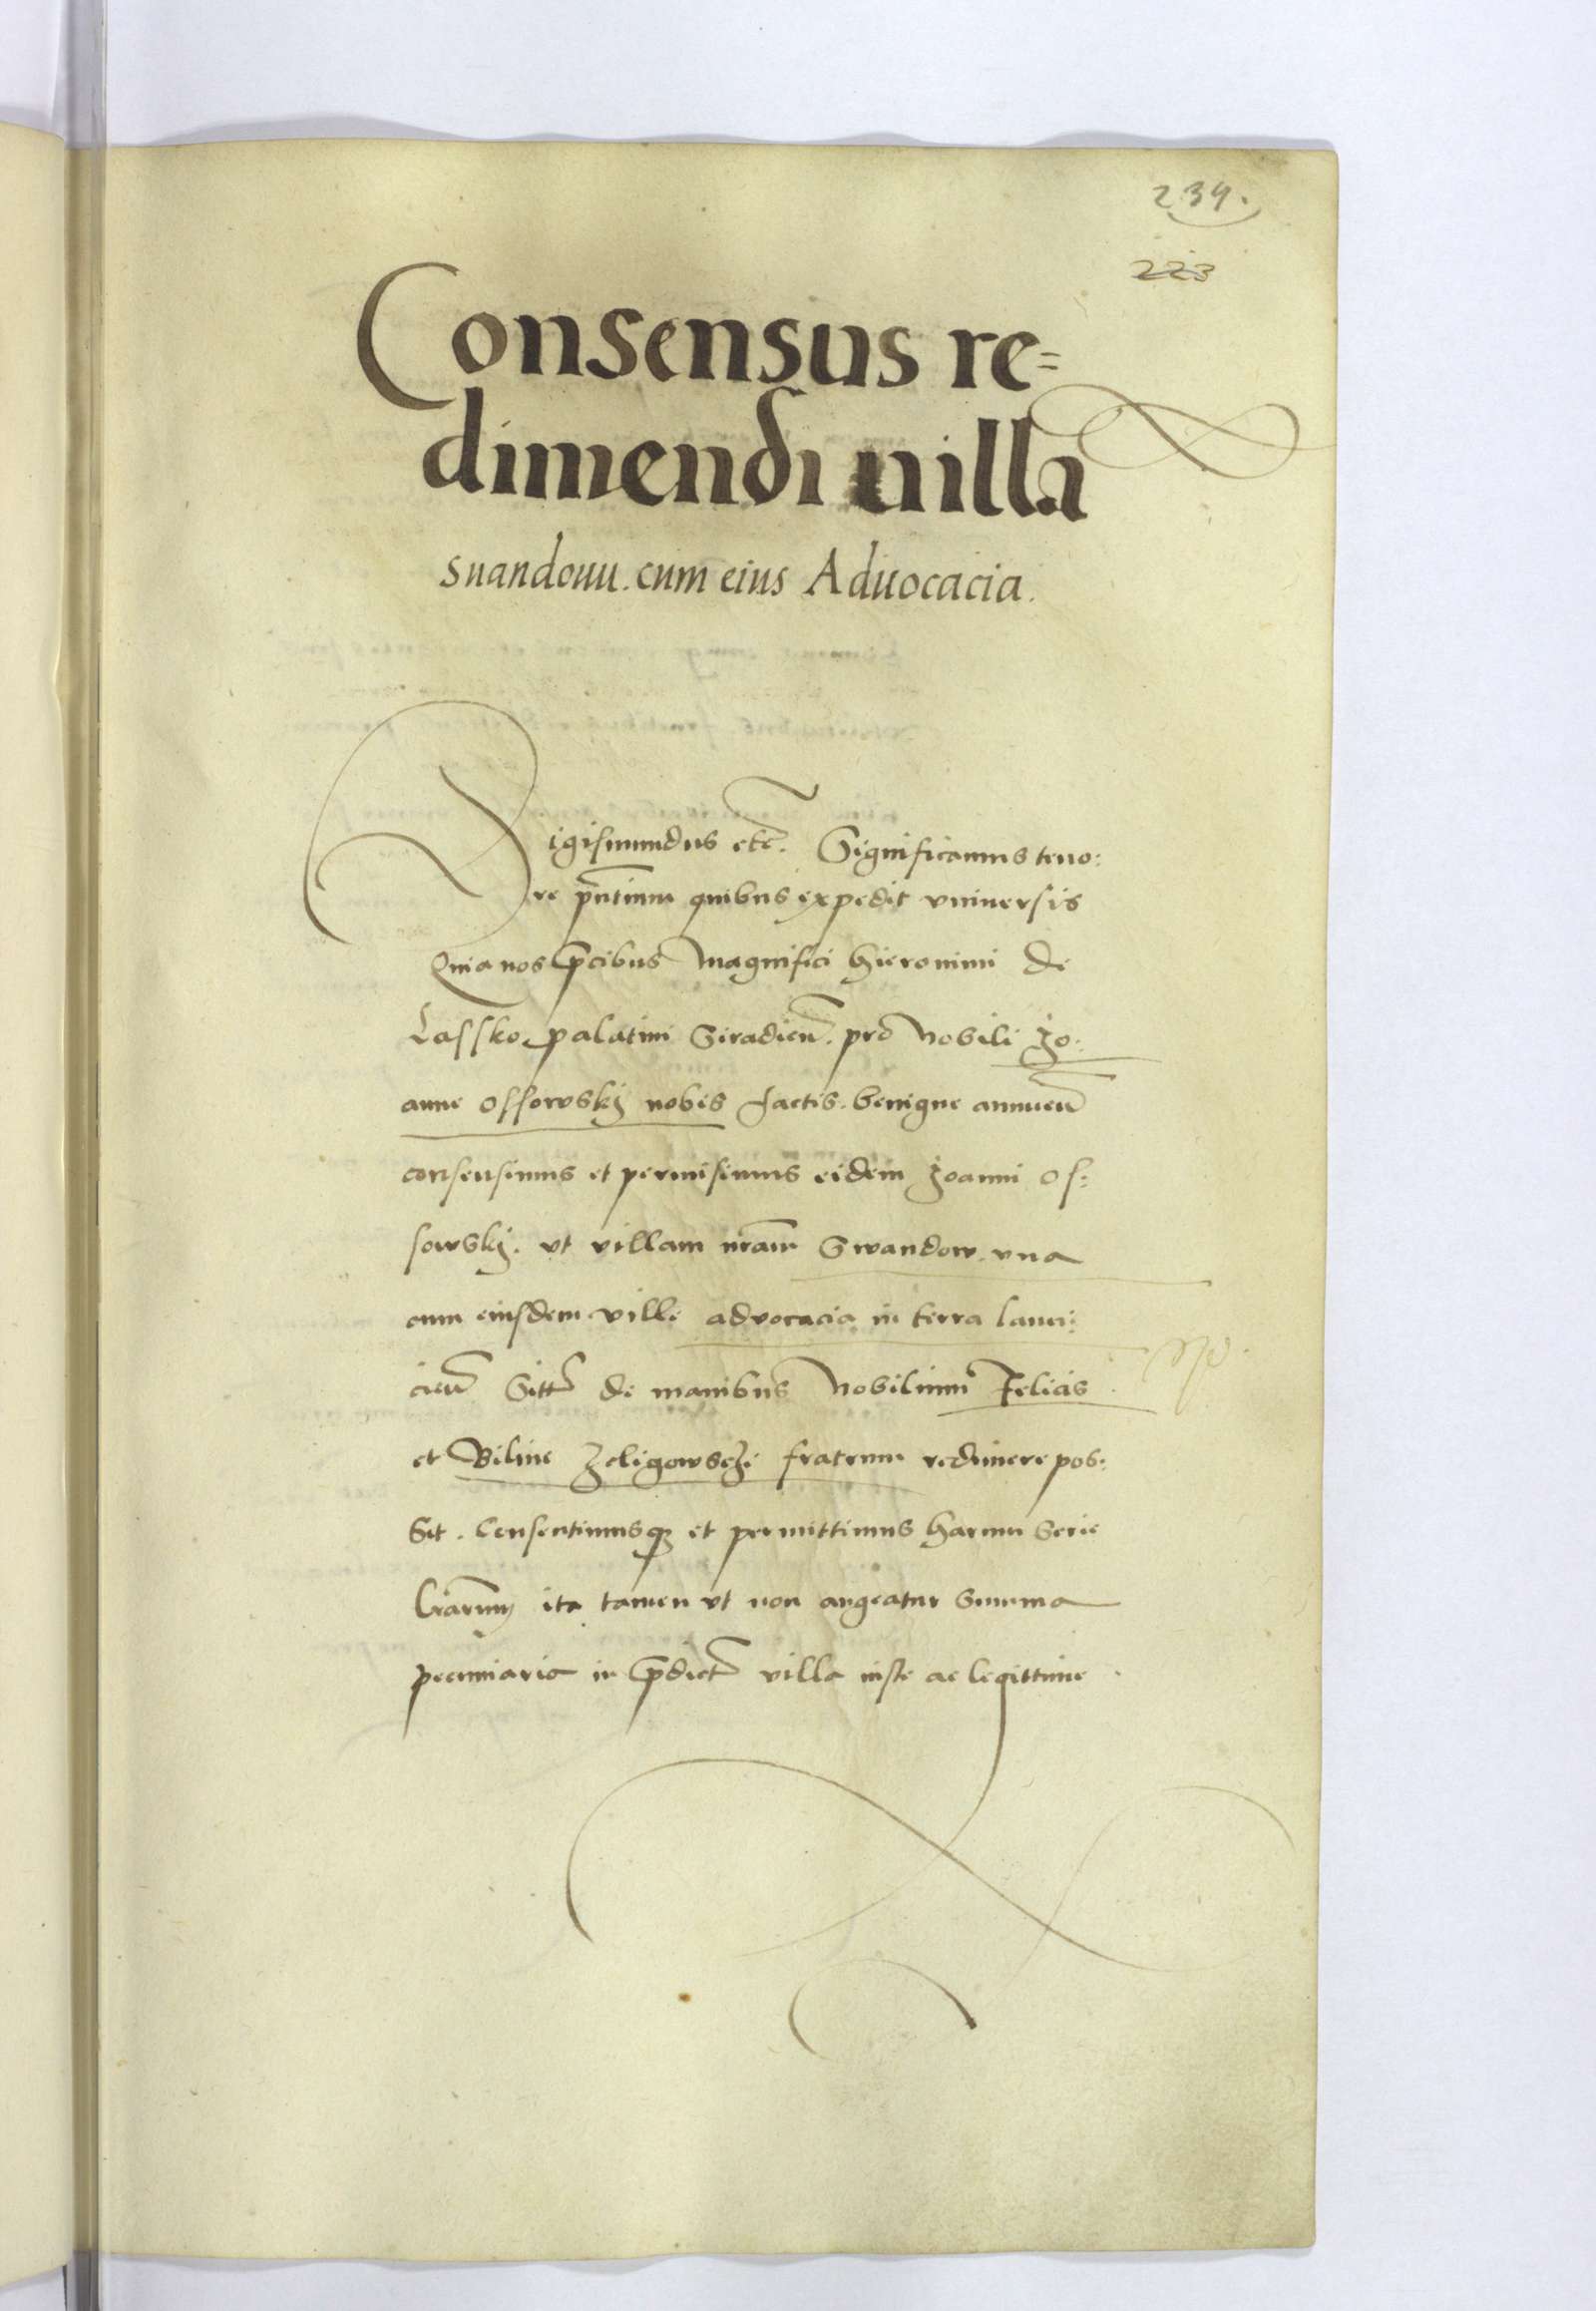 234.
223
Consensus re=
dimendi uilla
suandouu. cum eius Aduocacia.
Sigismundus etc̃. Significamus teno:
re p̃ntium quibus expedit vniuersis
Quia nos p̃cibus Magnifici Hieronimi de
Lassko palatini Siradien̄. pro Nobili Jo:
anne Ossowskij nobis factis. benigne annuen̄
consensimus et permisimus eidem Joanni Os:
sowskij. vt villam nr̃am Swandow. vna
cum eiusdem ville advocacia in terra lanci:
cien̄ Sitt̃ de manibus Nobilium Felicis
et Biline Zeligowsczi fratrum redimere pos:
sit. Consentimusqz et permittimus harum serie
lr̃arum ita tamen vt non augeatur summa
pecuniaria in p̃dict̃ villa iuste ac legittime